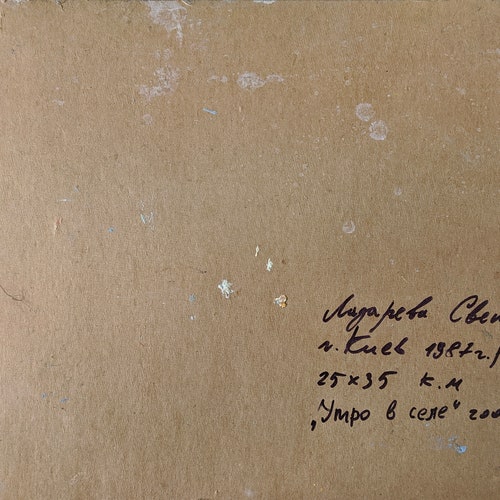 Лазарева Све
г. Киев 1987г.р
25×35 к.м
„Утро в селе" 200